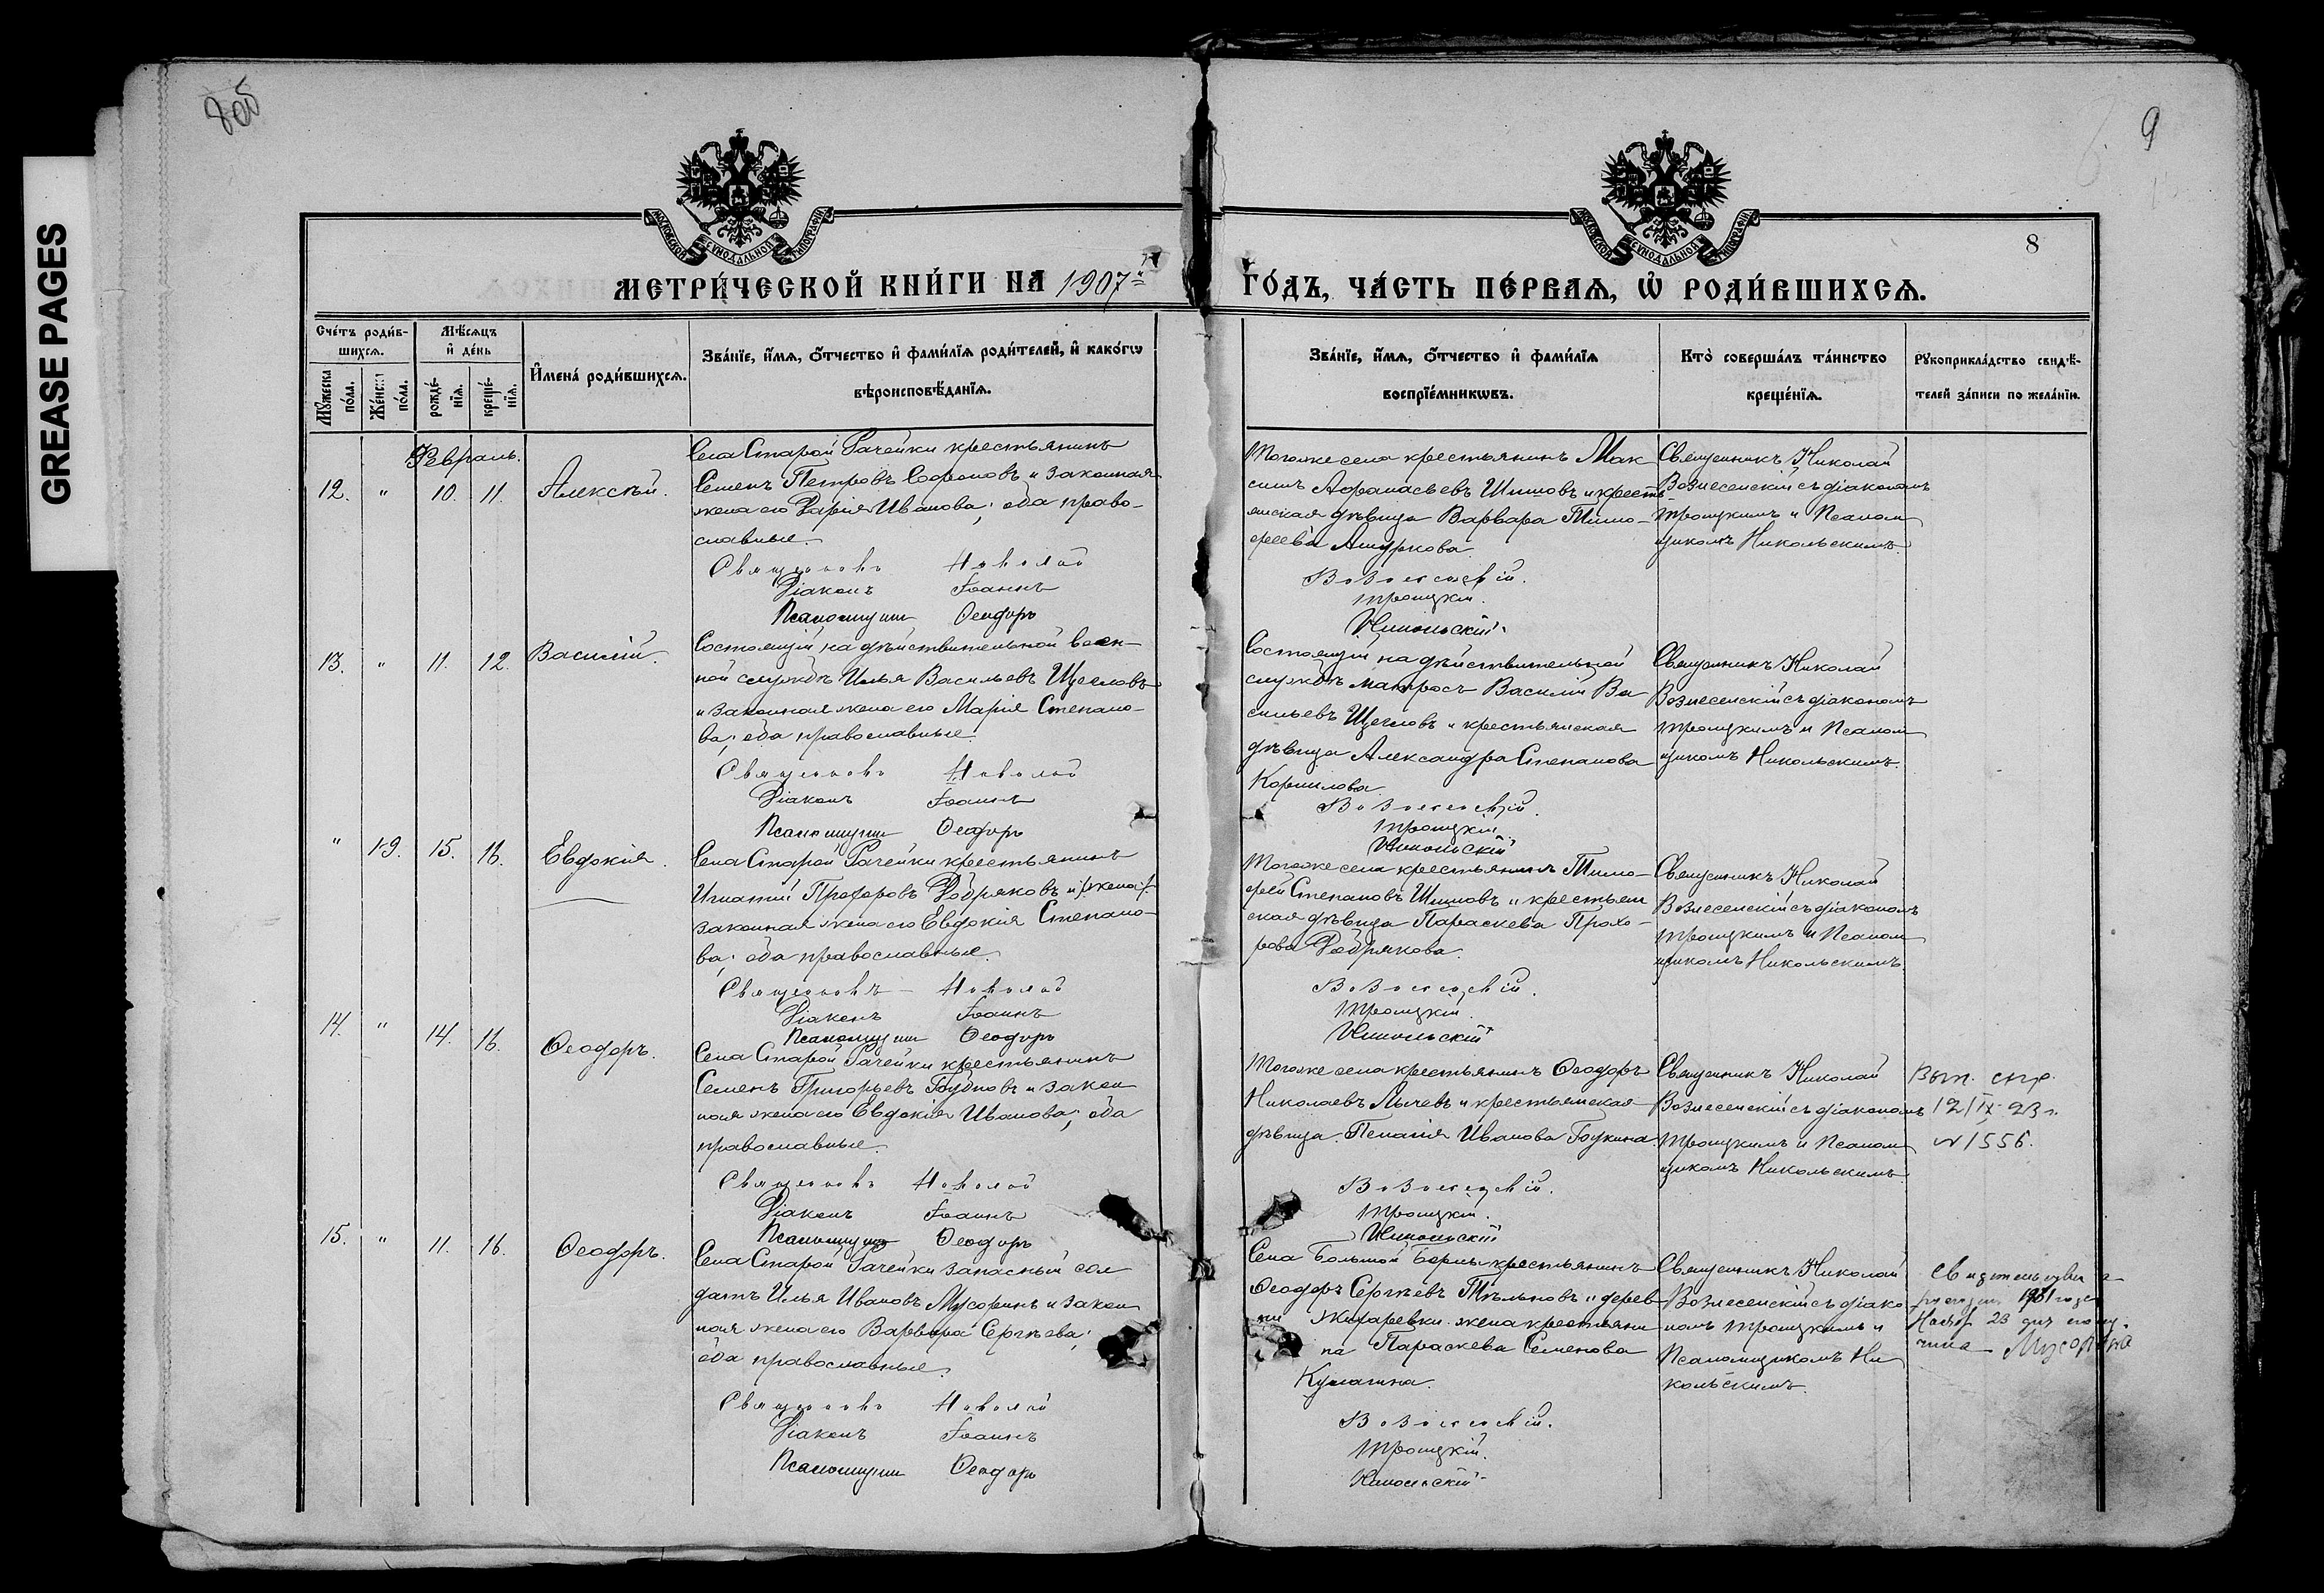 GREASE PAGES
8об
9
8
МОСКОВСКОЙ СѴНОДАЛЬНОЙ ТИПОГРАФІИ
МОСКОВСКОЙ СѴНОДАЛЬНОЙ ТИПОГРАФІИ
МЕТРИ́ЧЕСКОЙ КНИ́ГИ НА 1907й
ГО́ДЪ, ЧА́СТЬ ПЕ́РВАѦ, Ѡ҆ РОДИ́ВШИХСѦ.
Сче́тъ роди́в-
шихсѧ.
Мꙋ́жеска по́ла.
Же́нска по́ла.
Мѣ́сѧцъ
и҆ де́нь
рожде́-
нїѧ.
креще́-
нїѧ.
И҆мена́ роди́вшихсѧ.
Зва́нїе, и҆́мѧ, ѻ҆́тчество и҆ фами́лїѧ роди́телей, и҆ како́гѡ
вѣроисповѣ́данїѧ.
Зва́нїе, и҆́мѧ, ѻ҆́тчество и҆ фами́лїѧ
воспрїе́мникѡвъ.
Кто̀ соверша́лъ та́инство
креще́нїѧ.
Рꙋкоприкла́дство свидѣ́-
телей за́писи по жела́нїю.
Февраль.
12. " 10. 11. Алексѣй.
Села Старой Рачейки крестьянинъ
Семенъ Петровъ Софроновъ и законная
жена его Дарія Иванова; оба право-
славные.
Священникъ Николай
Діаконъ Іоаннъ
Псаломщикъ Ѳеодоръ
Тогоже села крестьянинъ Мак
симъ Афанасьевъ Шишовъ и кресть-
янская дѣвица Варвара Тимо-
феева Ашуркова.
Вознесенскій.
Троицкій.
Никольскій.
Священникъ Николай
Вознесенскій съ діакономъ
Троицкимъ и Псалом
щикомъ Никольскимъ.
13. " 11. 12. Василій.
Состоящій на дѣйствительной воен-
ной службѣ Илья Васильевъ Щегловъ
и законная жена его Марія Степано-
ва; оба православные.
Священникъ Николай
Діаконъ Іоаннъ
Псаломщикъ Ѳеодоръ
Состоящій на дѣйствительной
службѣ матросъ Василій Ва
сильевъ Щегловъ и крестьянская
дѣвица Александра Степанова
Корнилова.
Вознесенскій.
Троицкій.
Никольскій
Священникъ Николай
Вознесенскій съ діакономъ
Троицкимъ и Псалом
щикомъ Никольскимъ.
" 19. 15. 16. Евдокія.
Села Старой Рачейки крестьянинъ
Игнатій Прохоровъ Добряковъ и /жена/
законная жена его Евдокія Степано-
ва; оба православные.
Священникъ Николай
Діаконъ Іоаннъ
Псаломщикъ Ѳеодоръ
Тогоже села крестьянинъ Тимо-
фей Степановъ Шишовъ и крестьян
ская дѣвица Параскева Прохо-
рова Добрякова.
Вознесенскій.
Троицкій.
Никольскій
Священникъ Николай
Вознесенскій съ діакономъ
Троицкимъ и Псалом
щикомъ Никольскимъ.
14. " 14. 16. Ѳеодоръ.
Села Старой Рачейки крестьянинъ
Семенъ Григорьевъ и закон
ная жена его Евдокія Иванова; оба
православные.
Священникъ Николай
Діаконъ Іоаннъ
Псаломщикъ Ѳеодоръ
Тогоже села крестьянинъ Ѳеодоръ
Николаевъ Лычевъ и крестьянская
дѣвица Пелагія Иванова
Вознесенскій.
Троицкій.
Никольскій
Священникъ Николай
Вознесенскій съ діакономъ
Троицкимъ и Псалом
щикомъ Никольскимъ.
Вып. спр.
12/IX-23 г.
№1556.
15. " 11. 16. Ѳеодоръ.
Села Старой Рачейки запасный сол
датъ Илья Ивановъ Мусоринъ и закон
ная жена его Варвара Сергѣева;
оба православные.
Священникъ Николай
Діаконъ Іоаннъ
Псаломщикъ Ѳеодоръ
Села Большой Борлы крестьянинъ
Ѳеодоръ Сергѣевъ и дерев
ни Жихаревки жена крестьяни
на Параскева Семенова
Кулагина.
Вознесенскій.
Троицкій.
Никольскій
Священникъ Николай
Вознесенскій съ діако
номъ Троицкимъ и
Псаломщикомъ Ни
кольскимъ.
23 дня полу-
чила Мусорина